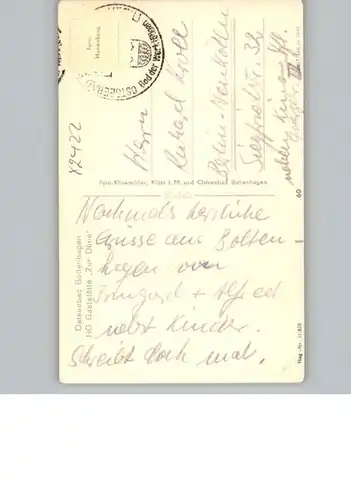 OSTSEEBAD
Bad der Werktätigen
Herrn
Berlin-Neukölln
Siegfriedstr. 32
neben Kino
Foto-Klinkmüller, Klütz i. M. und Ostseebad Boltenhagen
X2422
Nochmals herzliche
Grüsse aus Bolten-
hagen von
Irmgard + Alfred
nebst Kinder.
Schreibt doch mal.
Ostseebad Boltenhagen
HO Gaststätte „Zur Düne"
60